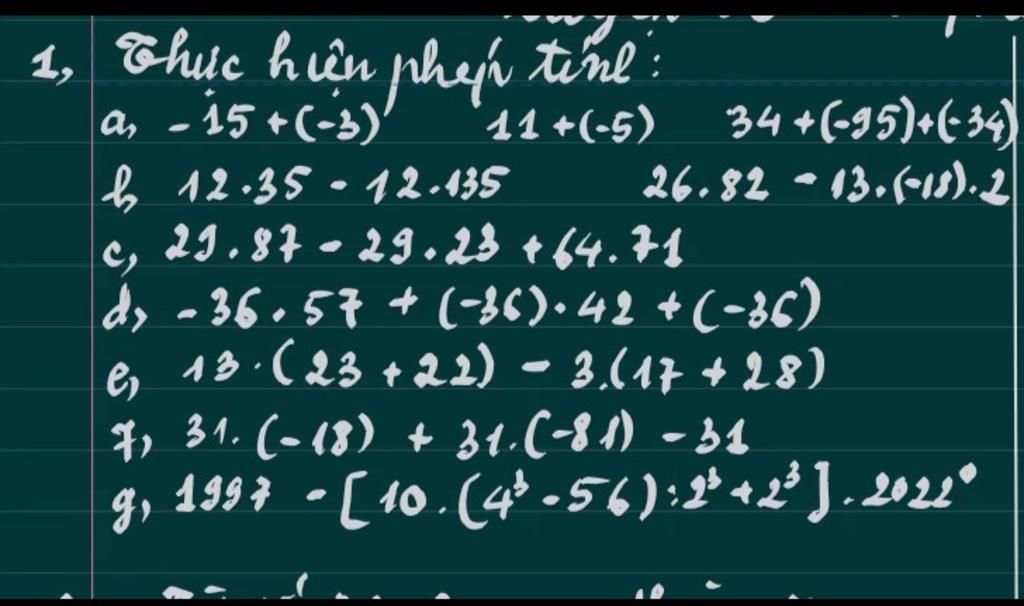 1, Thực hiện phép tính:
a, -15 + (-3) 11 + (-5) 34 + (-95) + (-34)
b, 12.35 - 12.135 26.82 - 13.(-18).2
c, 29.87 - 29.23 + 64.71
d, -36.57 + (-36).42 + (-36)
e, 13.(23 + 22) - 3.(17 + 28)
f, 31.(-18) + 31.(-81) - 31
g, 1997 - [10.(4³ - 56) : 2³ + 2³] . 2022⁰